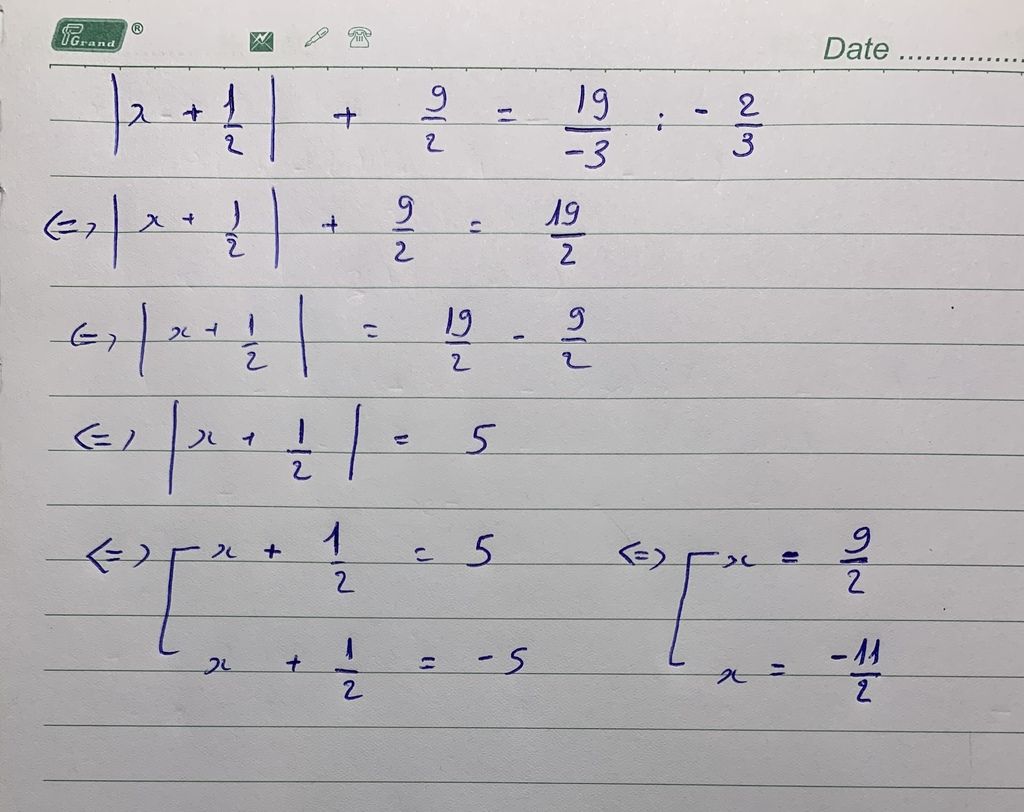 Grand ®
Date ................
|x + 1/2| + 9/2 = 19/-3 : - 2/3
<=> |x + 1/2| + 9/2 = 19/2
<=> |x + 1/2| = 19/2 - 9/2
<=> |x + 1/2| = 5
<=> [ x + 1/2 = 5 <=> [ x = 9/2
x + 1/2 = -5 x = -11/2